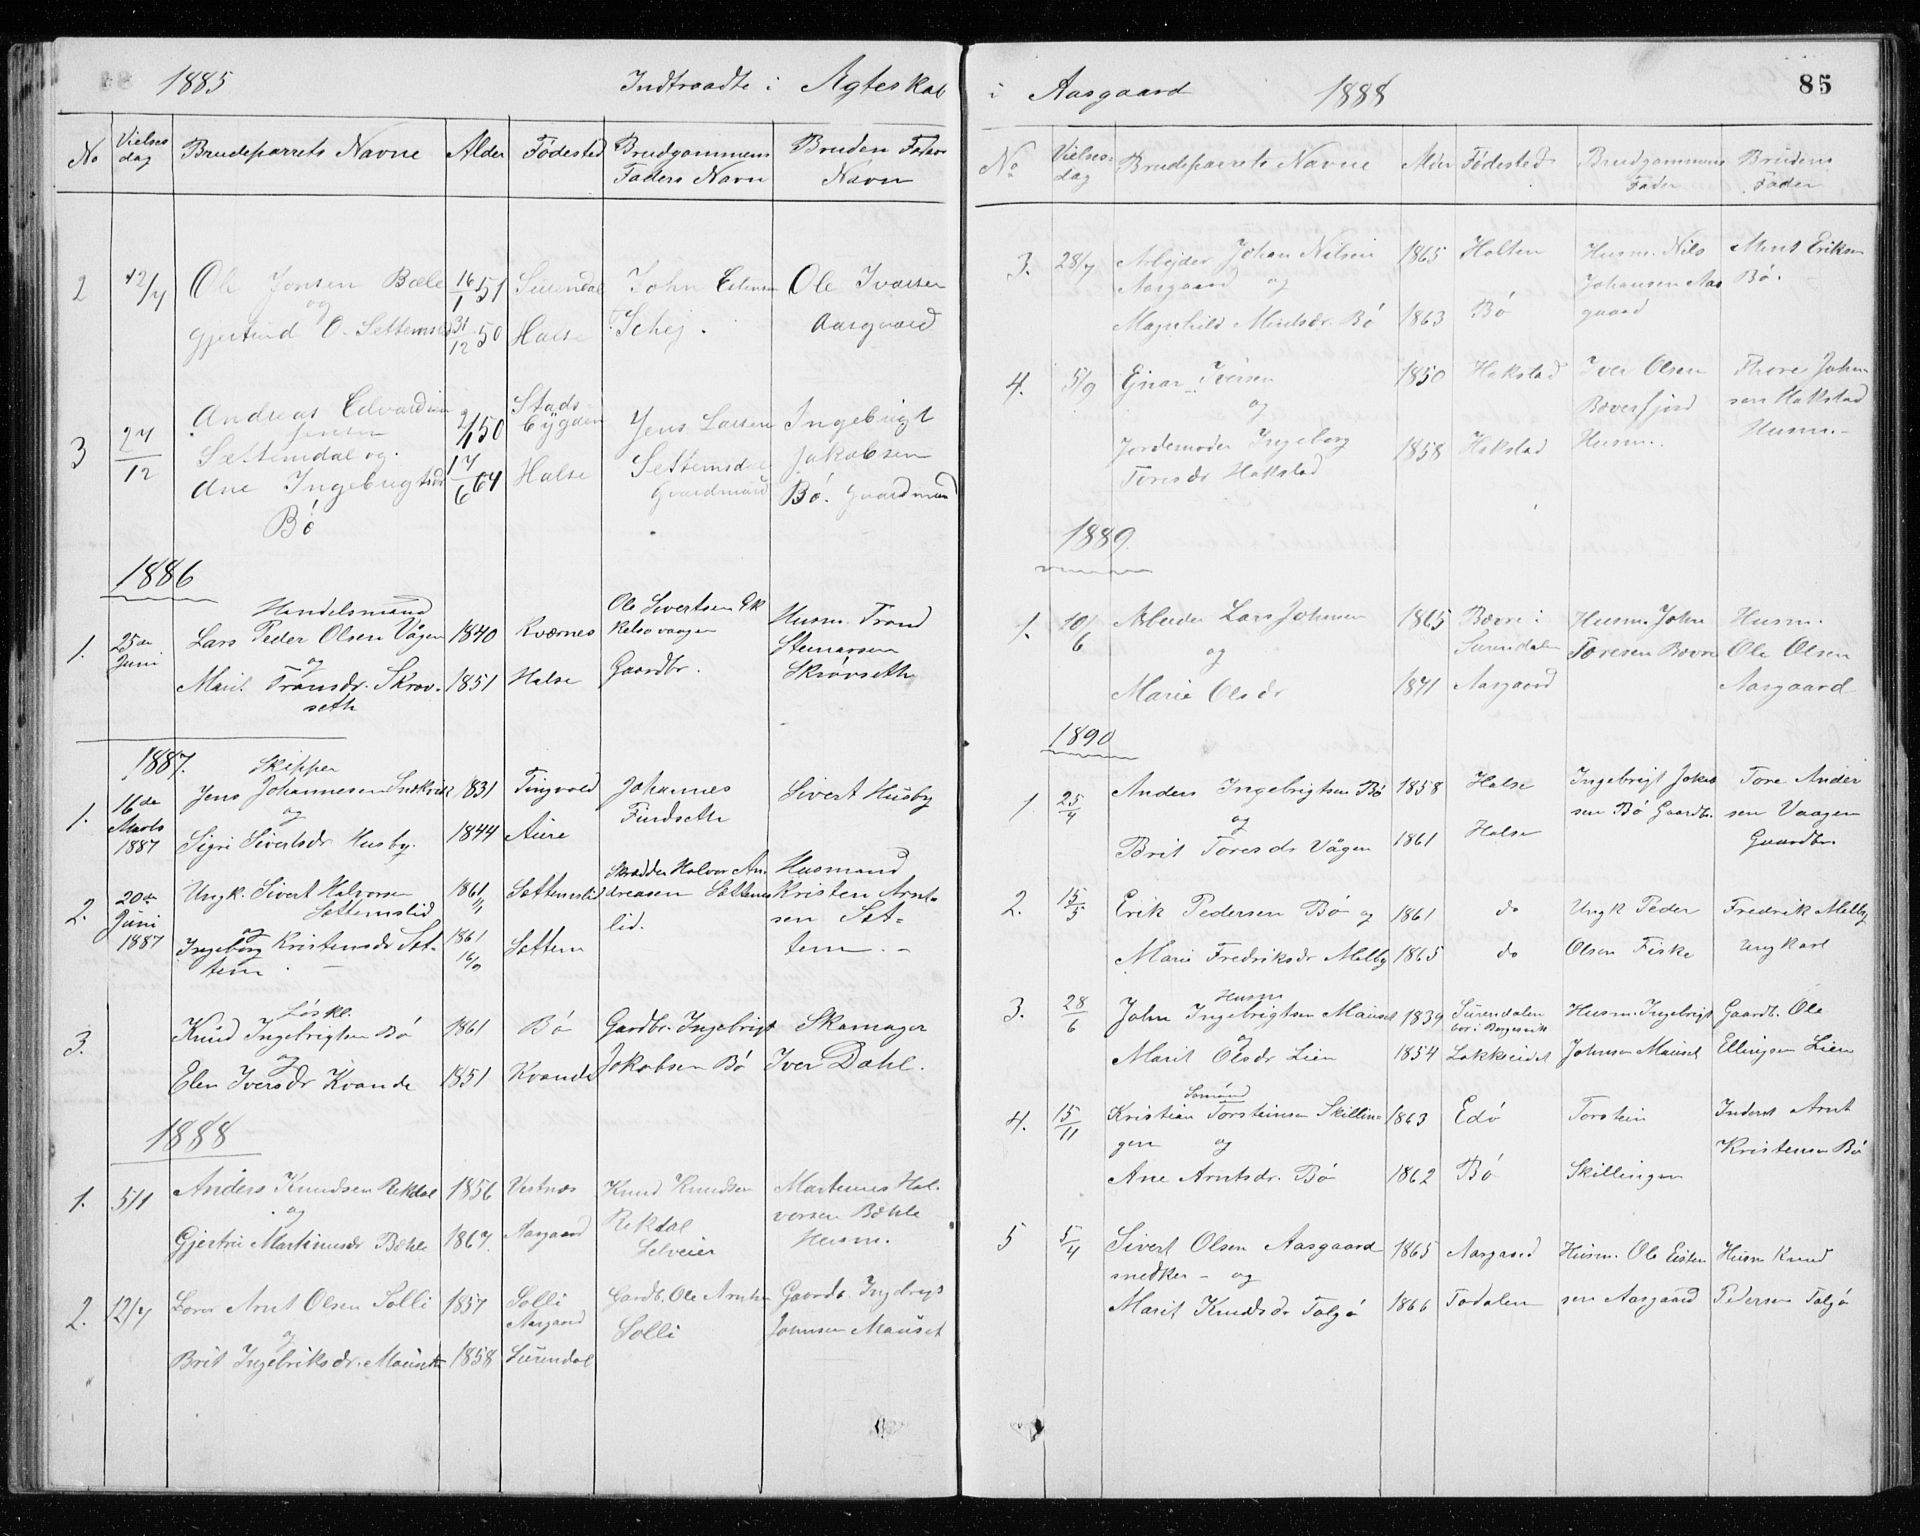 1885 Indtraadte i Ægteskab
No Vielses dag Brudeparrets Navne Alder Fødested Brudgommens Faders Navn Bruden Faders Navn
2 12/7 Ole Jonsen Bæle 16/1 51 Surendal John Estensen Ole Ivarsen
og
Gjertrud O. Settemslid 31/12 50 Halse Schej. Aasgaard
3 27/12 Andreas Edvardsen 2/1 50 Stads- Jens Larsen Ingebrigt
Jensen bygden
Settemsdal og. Settemsdal Jakobsen
Ane Ingebrigtsdr 17/6 64 Halse Gaardmand Bø. Gaardmand
Bø
1886
Handelsmand Ole Sivertsen
1. 25de Juni Lars Peder Olsen Vågen 1840 Kværnes Kelsovaagen Husm. Trond
og Stenarsen
Marit Tronsdr. Skrøv- 1851 Halse Gaardbr. Skrøvseth
seth
1887.
Skipper
1. 16de Marts 1887 Jens Johannesen 1831 Tingvold Johannes Sivert Husby
og Findseth
Sigri Sivertsdr Husby. 1844 Aure
2. 20de Juni 1887 Ungk. Sivert Halvorsen 1861 Settemslid Skrædder Halvor An- Husmand
Settemslid dreasen Settems- Kristen Arnt-
og lid. sen Set-
Ingeborg Kristensdr Set- 1861 16/9 Settem tem. -
tem
Løskl.
3. Knud Ingebrigtsen Bø 1861 Bø Gardbr. Ingebrigt Skomager
og
Elen Iversdr Kvande 1851 Kvande Jakobsen Bø Iver Dahl.
1888
1. 5/1 Anders Knudsen Rekdal 1856 Vestnæs Knud Knudsen Martinus Hal-
og Rekdal vorsen Bæhle
Gjertru Martinusdr Bæhle 1867. Aasgaard Selveier Husm.
2. 12/7 Lærer Arnt Olsen Solli 1857 Solli Gardb. Ole Arntsen Gaardb. Ingebrigt
og Aasgaard Solli Johnsen Mauset
Brit Ingebriksdr. Mauseth 1858 Surendal
i Aasgaard 1888 85
No Vielses- dag Brudeparrets Navne Alder Fødested Brudgommens Fader Brudens Fader
3. 28/7 Arbejder Johan Nilsen 1865 Holten Husm. Nils Ment Eriksen
Aasgaard og Johansen Aas Bø.
Magnhild Mentsdr. Bø 1863 Bø gaard
4. 5/9 Ejnar Iversen 1850 Hakstad Iver Olsen Thore John
og Bæverfjord sen Hakstad
Jordemoder Ingeborg 1858 Hakstad Husm. Husm.-
Toresdr Hakstad
1889.
1. 10/6 Arbeider Lars Johnsen 1865 Bævre i Husm. John Husm.
og Surendalen Toresen Bævre Ole Olsen
Marie Olsdr 1841 Aasgaard Aasgaard
1890
1 25/4 Anders Ingebrigtsen Bø 1858 Halse Ingebrigt Jakob Tore Ander
og sen Bø Gaardbr. sen Vaagen
Brit Toresdr Vågen 1861 Halse Gaardbr.
2. 15/5 Erik Pedersen Bø og 1861 do Ungk Peder Fredrik Melby
Marie Fredriksdr Melby 1865 do Olsen Fiske Ungkarl
Husm
3. 28/6 John Ingebrigtsen Mauset 1839 Surendalen Husm. Ingebrigt Gaardb. Ole
og
Marit Olsdr Lien 1854 Lakkeidet Johnsen Mauset Ellingsen Lien
Sømand
4. 15/11 Kristian Torsteinsen Skillin- 1863 Edø Torstein Inderst Arnt
gen og Kristensen Bø
Ane Arntsdr. Bø 1862 Bø Skillingen
5 5/4 Sivert Olsen Aasgaard 1865 Aasgaard Husm. Ole Eisten Husm Knud
snedker - og
Marit Knudsdr Talgø 1866 Todalen sen Aasgaard Pedersen Talgø